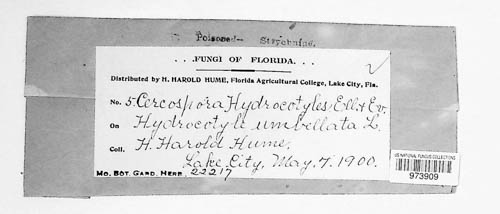 Poisoned— Strychnine.
...FUNGI OF FLORIDA...
Distributed by H. HAROLD HUME, Florida Agricultural College, Lake City, Fla.
No. 5. Cercospora Hydrocotyles Ell. & Ev.
On Hydrocotyle umbellata L.
Coll. H. Harold Hume.
Lake City, May. 7. 1900.
MO. BOT. GARD. HERB. 22217
US NATIONAL FUNGUS COLLECTIONS
973909